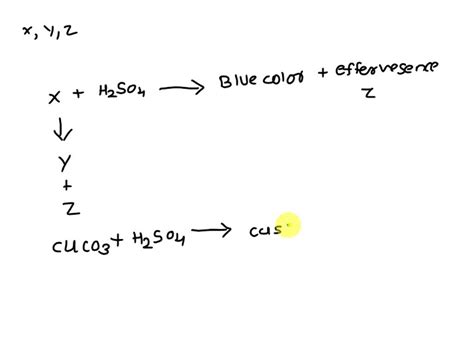 X, Y, Z
X + H2SO4 → Blue color + effervesence
Z
↓
Y
+
Z
CuCO3 + H2SO4 → cus